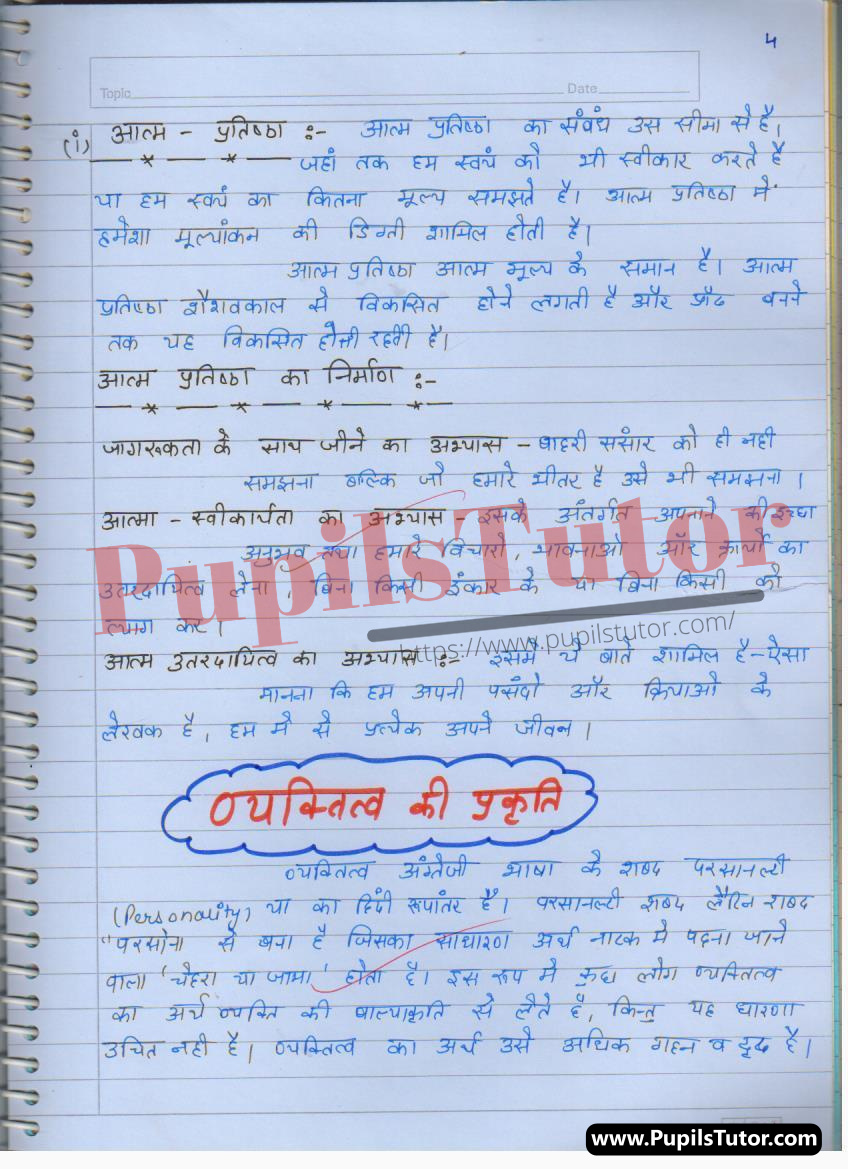 4
Topic Date
(i) आत्म - प्रतिष्ठा :- आत्म प्रतिष्ठा का संबंध उस सीमा से है।
जहां तक हम स्वयं को भी स्वीकार करते है
या हम स्वयं का कितना मूल्य समझते है। आत्म प्रतिष्ठा में
हमेशा मूल्यांकन की डिग्री शामिल होती है।
आत्म प्रतिष्ठा आत्म मूल्य के समान है। आत्म
प्रतिष्ठा शैशवकाल से विकसित होने लगती है और प्रौढ बनने
तक यह विकसित होती रहती है।
आत्म प्रतिष्ठा का निर्माण :-
जागरूकता के साथ जीने का अभ्यास - बाहरी संसार को ही नही
समझना बल्कि जो हमारे भीतर है उसे भी समझना।
आत्मा - स्वीकार्यता का अभ्यास - इसके अंतर्गत अपनाने की इच्छा
अनुभव तथा हमारे विचारो, भावनाओ और कार्यो का
उतरदायित्व लेना, बिना किसी इंकार के या बिना किसी को
त्याग कर।
PupilsTutor
https://www.pupilstutor.com/
आत्म उतरदायित्व का अभ्यास :- इसमे ये बाते शामिल है - ऐसा
मानना कि हम अपनी पसंदो और क्रियाओ के
लेखक है, हम मे से प्रत्येक अपने जीवन।
व्यक्तित्व की प्रकृति
व्यक्तित्व अंग्रेजी भाषा के शब्द परसानल्टी
(Personality) या का हिंदी रूपांतर है। परसानल्टी शब्द लैटिन शब्द
"परसोना से बना है जिसका साधारण अर्थ नाटक मे पहना जाने
वाला 'चेहरा या जामा' होता है। इस रूप मे कुछ लोग व्यक्तित्व
का अर्थ व्यक्ति की बाल्याकृति से लेते है, किन्तु यह धारणा
उचित नही है। व्यक्तित्व का अर्थ उसे अधिक गहन व दृढ है।
www.PupilsTutor.com